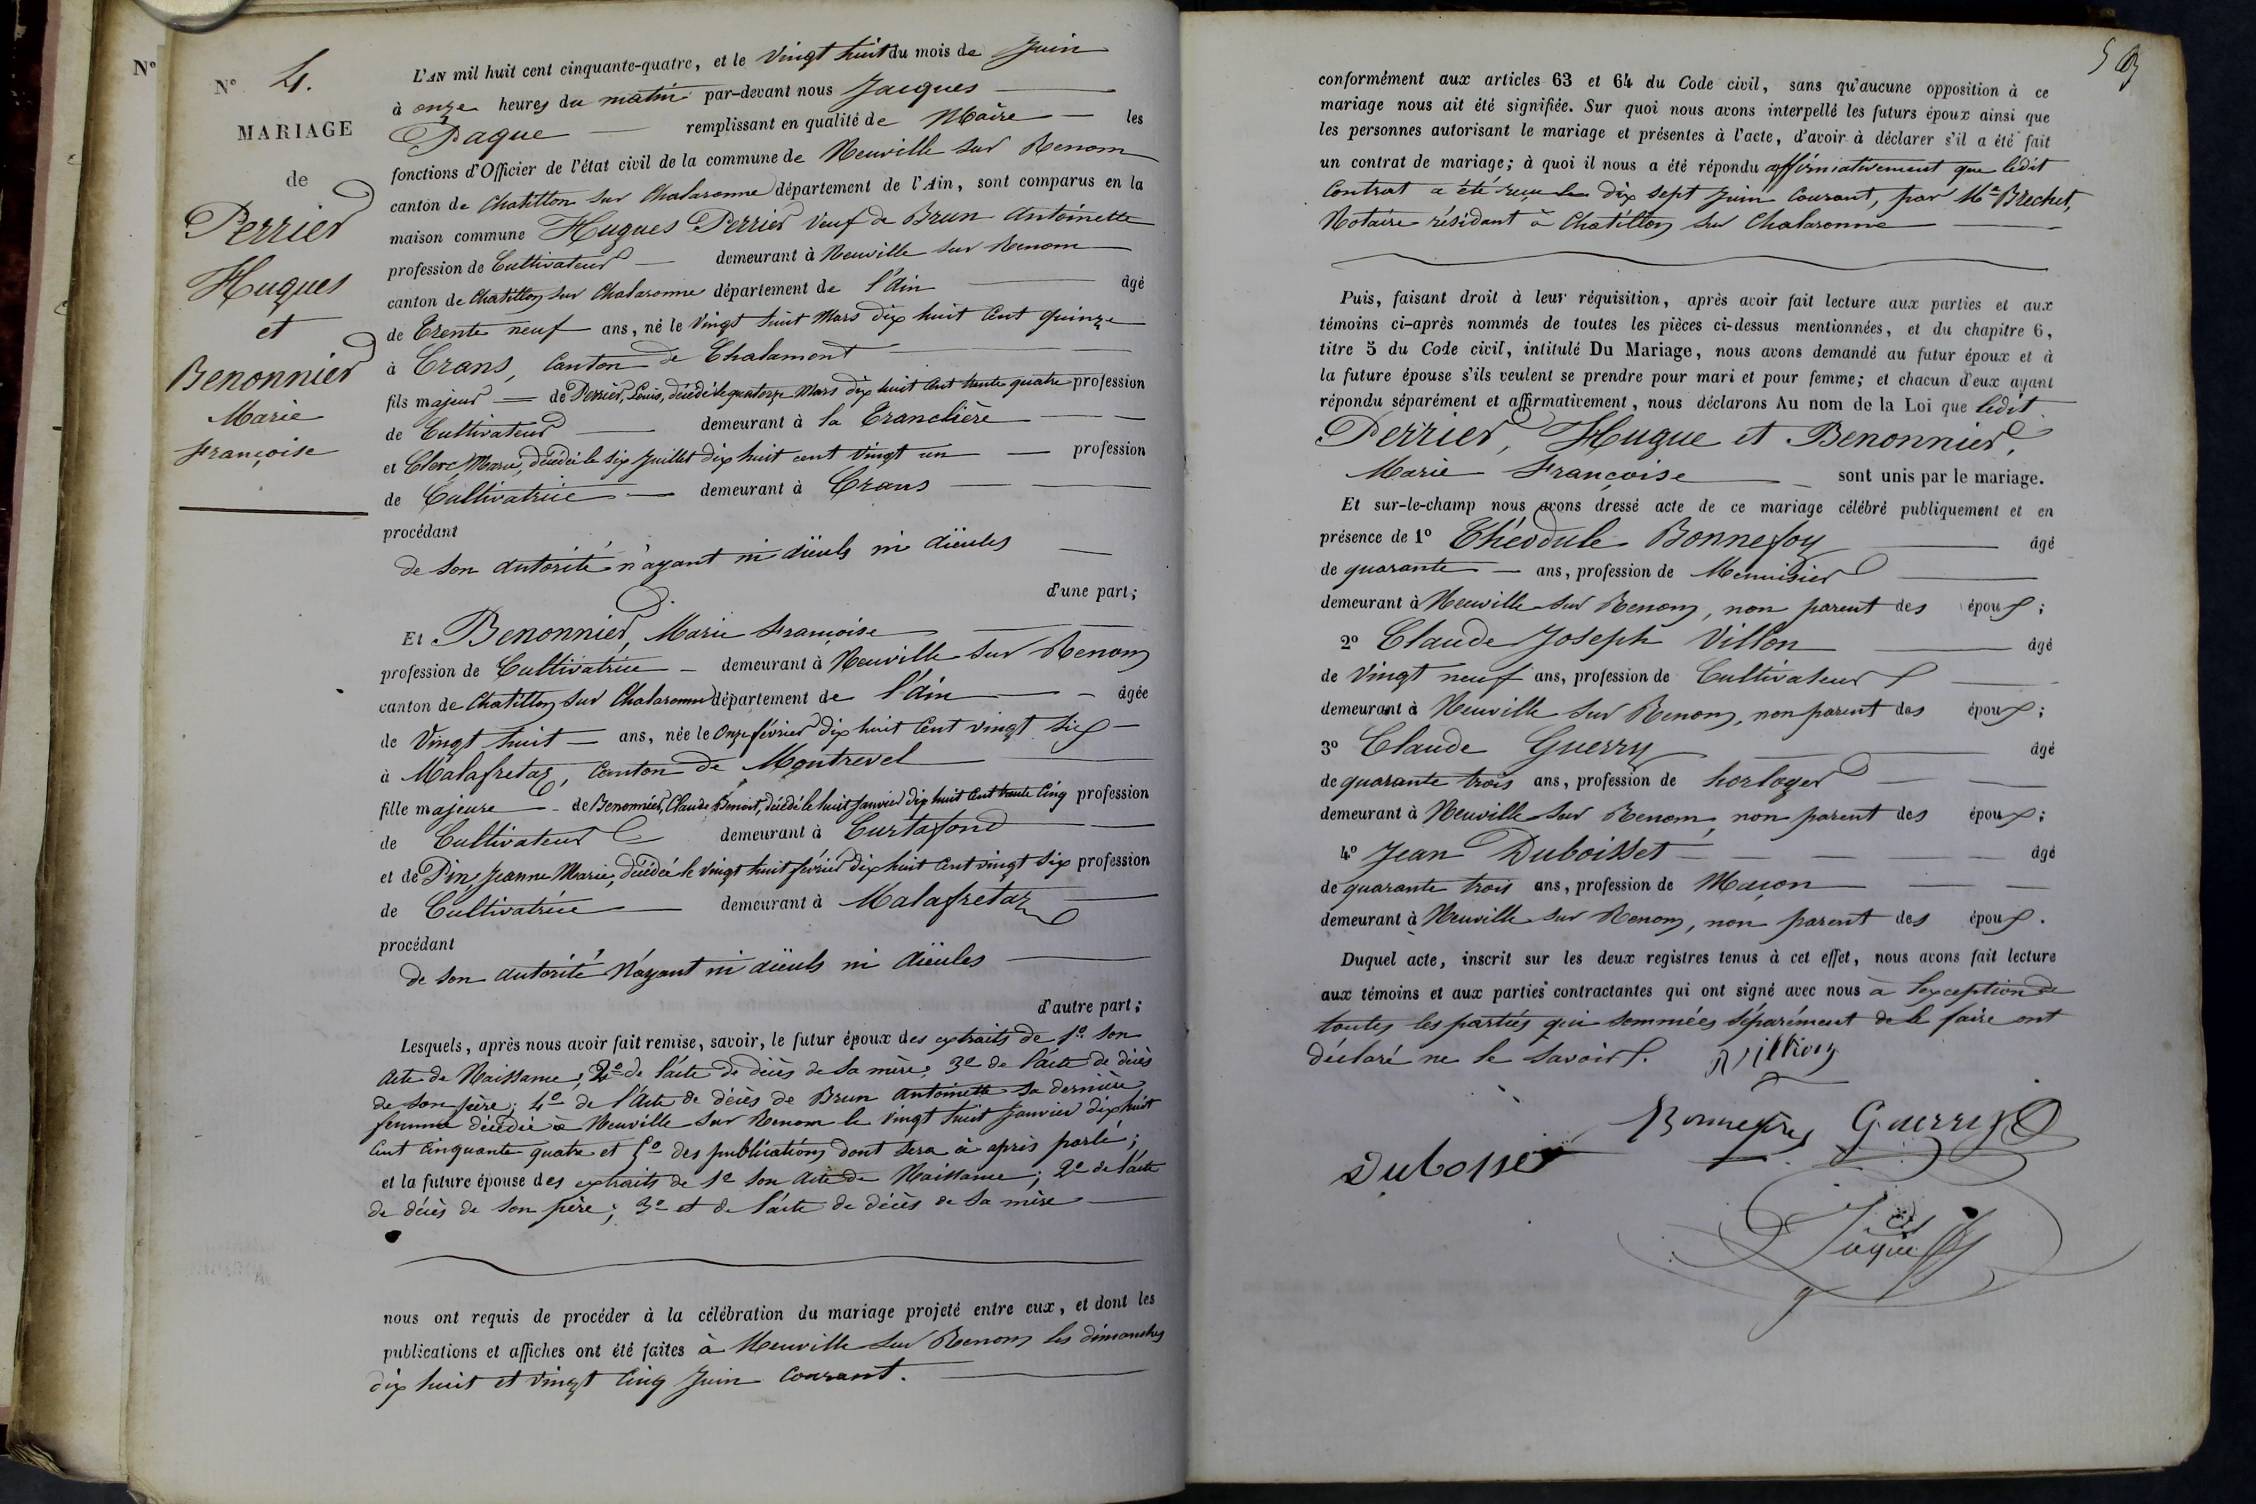 N°
N° 4.
MARIAGE
de
Perrier
Hugues
et
Benonnier
Marie
françoise
L'AN mil huit cent cinquante-quatre, et le Vingt huit du mois de Juin
à onze heures du matin par-devant nous Jacques
Paque remplissant en qualité de Maire les
fonctions d'Officier de l'état civil de la commune de Neuville sur Renom
canton de Chatillon sur Chalaronne département de l'Ain, sont comparus en la
maison commune Hugues Perrier Veuf de Brun Antoinette
profession de Cultivateur demeurant à Neuville sur Renom
canton de Chatillon sur Chalaronne département de l'Ain âgé
de Trente neuf ans, né le Vingt huit Mars dix huit Cent quinze
à Crans, Canton de Chalamont
fils majeur de Perrier, Louis, décédé le quatorze Mars dix huit Cent trente quatre profession
de Cultivateur demeurant à la Tranclière
et Clerc Marie, décédée le six Juillet dix huit cent vingt un profession
de Cultivatrice demeurant à Crans
procédant
de son autorité n'ayant ni aïeuls ni aïeules
d'une part;
Et Benonnier, Marie françoise
profession de Cultivatrice demeurant à Neuville sur Renom
canton de Chatillon sur Chalaronne département de l'Ain âgée
de Vingt huit ans, née le Onze février dix huit Cent vingt six
à Malafretaz, Canton de Montrevel
fille majeure de Benonnier, Claude Benoit, décédé le huit Janvier dix huit Cent trente Cinq profession
de Cultivateur demeurant à Curtafond
et de Pin, Jeanne Marie, décédée le Vingt huit février dix huit Cent vingt six profession
de Cultivatrice demeurant à Malafretaz
procédant
de son autorité N'ayant ni aïeuls ni Aïeules
d'autre part;
Lesquels, après nous avoir fait remise, savoir, le futur époux des extraits de 1° son
Acte de Naissance; 2° de l'acte de décès de sa mère; 3° de l'acte de décès
de son père; 4° de l'Acte de décès de Brun Antoinette sa dernière
femme décédée à Neuville sur Renom le Vingt huit Janvier dix huit
Cent Cinquante quatre et 5° des publications dont sera ci après parlé;
et la future épouse des extraits de 1° son Acte de Naissance; 2° de l'acte
de décès de son père; 3° et de l'acte de décès de sa mère
nous ont requis de procéder à la célébration du mariage projeté entre eux, et dont les
publications et affiches ont été faites à Neuville sur Renom les dimanches
dix huit et vingt Cinq Juin Courant.
conformément aux articles 63 et 64 du Code civil, sans qu'aucune opposition à ce
mariage nous ait été signifiée. Sur quoi nous avons interpellé les futurs époux ainsi que
les personnes autorisant le mariage et présentes à l'acte, d'avoir à déclarer s'il a été fait
un contrat de mariage; à quoi il nous a été répondu affirmativement que ledit
Contrat a été reçu le dix sept Juin Courant, par Me Brechet,
Notaire résidant à Chatillon sur Chalaronne
Puis, faisant droit à leur réquisition, après avoir fait lecture aux parties et aux
témoins ci-après nommés de toutes les pièces ci-dessus mentionnées, et du chapitre 6,
titre 5 du Code civil, intitulé Du Mariage, nous avons demandé au futur époux et à
la future épouse s'ils veulent se prendre pour mari et pour femme; et chacun d'eux ayant
répondu séparément et affirmativement, nous déclarons Au nom de la Loi que ledit
Perrier, Hugue et Benonnier,
Marie Françoise sont unis par le mariage.
Et sur-le-champ nous avons dressé acte de ce mariage célébré publiquement et en
présence de 1° Théodule Bonnefoy âgé
de quarante ans, profession de Menuisier
demeurant à Neuville sur Renom, non parent des époux;
2° Claude Joseph Villon âgé
de Vingt neuf ans, profession de Cultivateur
demeurant à Neuville sur Renom, non parent des époux;
3° Claude Guerry âgé
de quarante trois ans, profession de horloger
demeurant à Neuville sur Renom, non parent des époux;
4° Jean Duboisset âgé
de quarante trois ans, profession de Maçon
demeurant à Neuville sur Renom, non parent des époux.
Duquel acte, inscrit sur les deux registres tenus à cet effet, nous avons fait lecture
aux témoins et aux parties contractantes qui ont signé avec nous à l'exception de
toutes les parties qui sommées séparément de le faire ont
déclaré ne le savoir.
Guerry